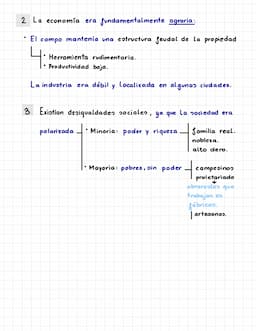 2. La economía era fundamentalmente agraria:
· El campo mantenía una estructura feudal de la propiedad
· Herramienta rudimentaria.
· Productividad baja.
La industria era débil y localizada en algunas ciudades.
3. Existían desigualdades sociales, ya que la sociedad era
polarizada
· Minoría: poder y riqueza
familia real.
nobleza.
alto clero.
· Mayoría: pobres, sin poder
campesinos
proletariado
obreros/as que
trabajan en
fábricas.
artesanos.